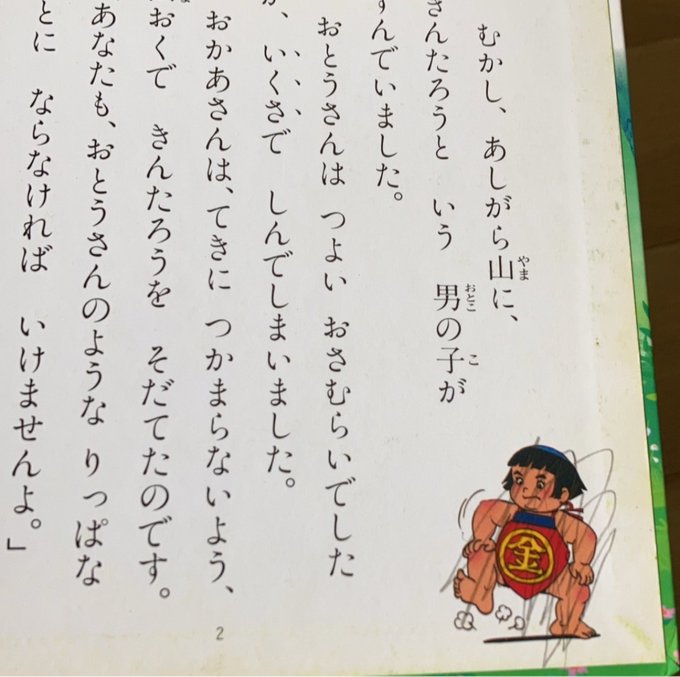 むかし、あしがら山に、
さんたろうと いう 男の子が
すんでいました。
おとうさんは つよい おさむらいでした
が、いくさで しんでしまいました。
おかあさんは、てきに つかまらないよう、
おくで きんたろうを そだてたのです。
あなたも、おとうさんのような りっぱな
とに ならなければ いけませんよ。」
やま
おとこ
こ
金
2